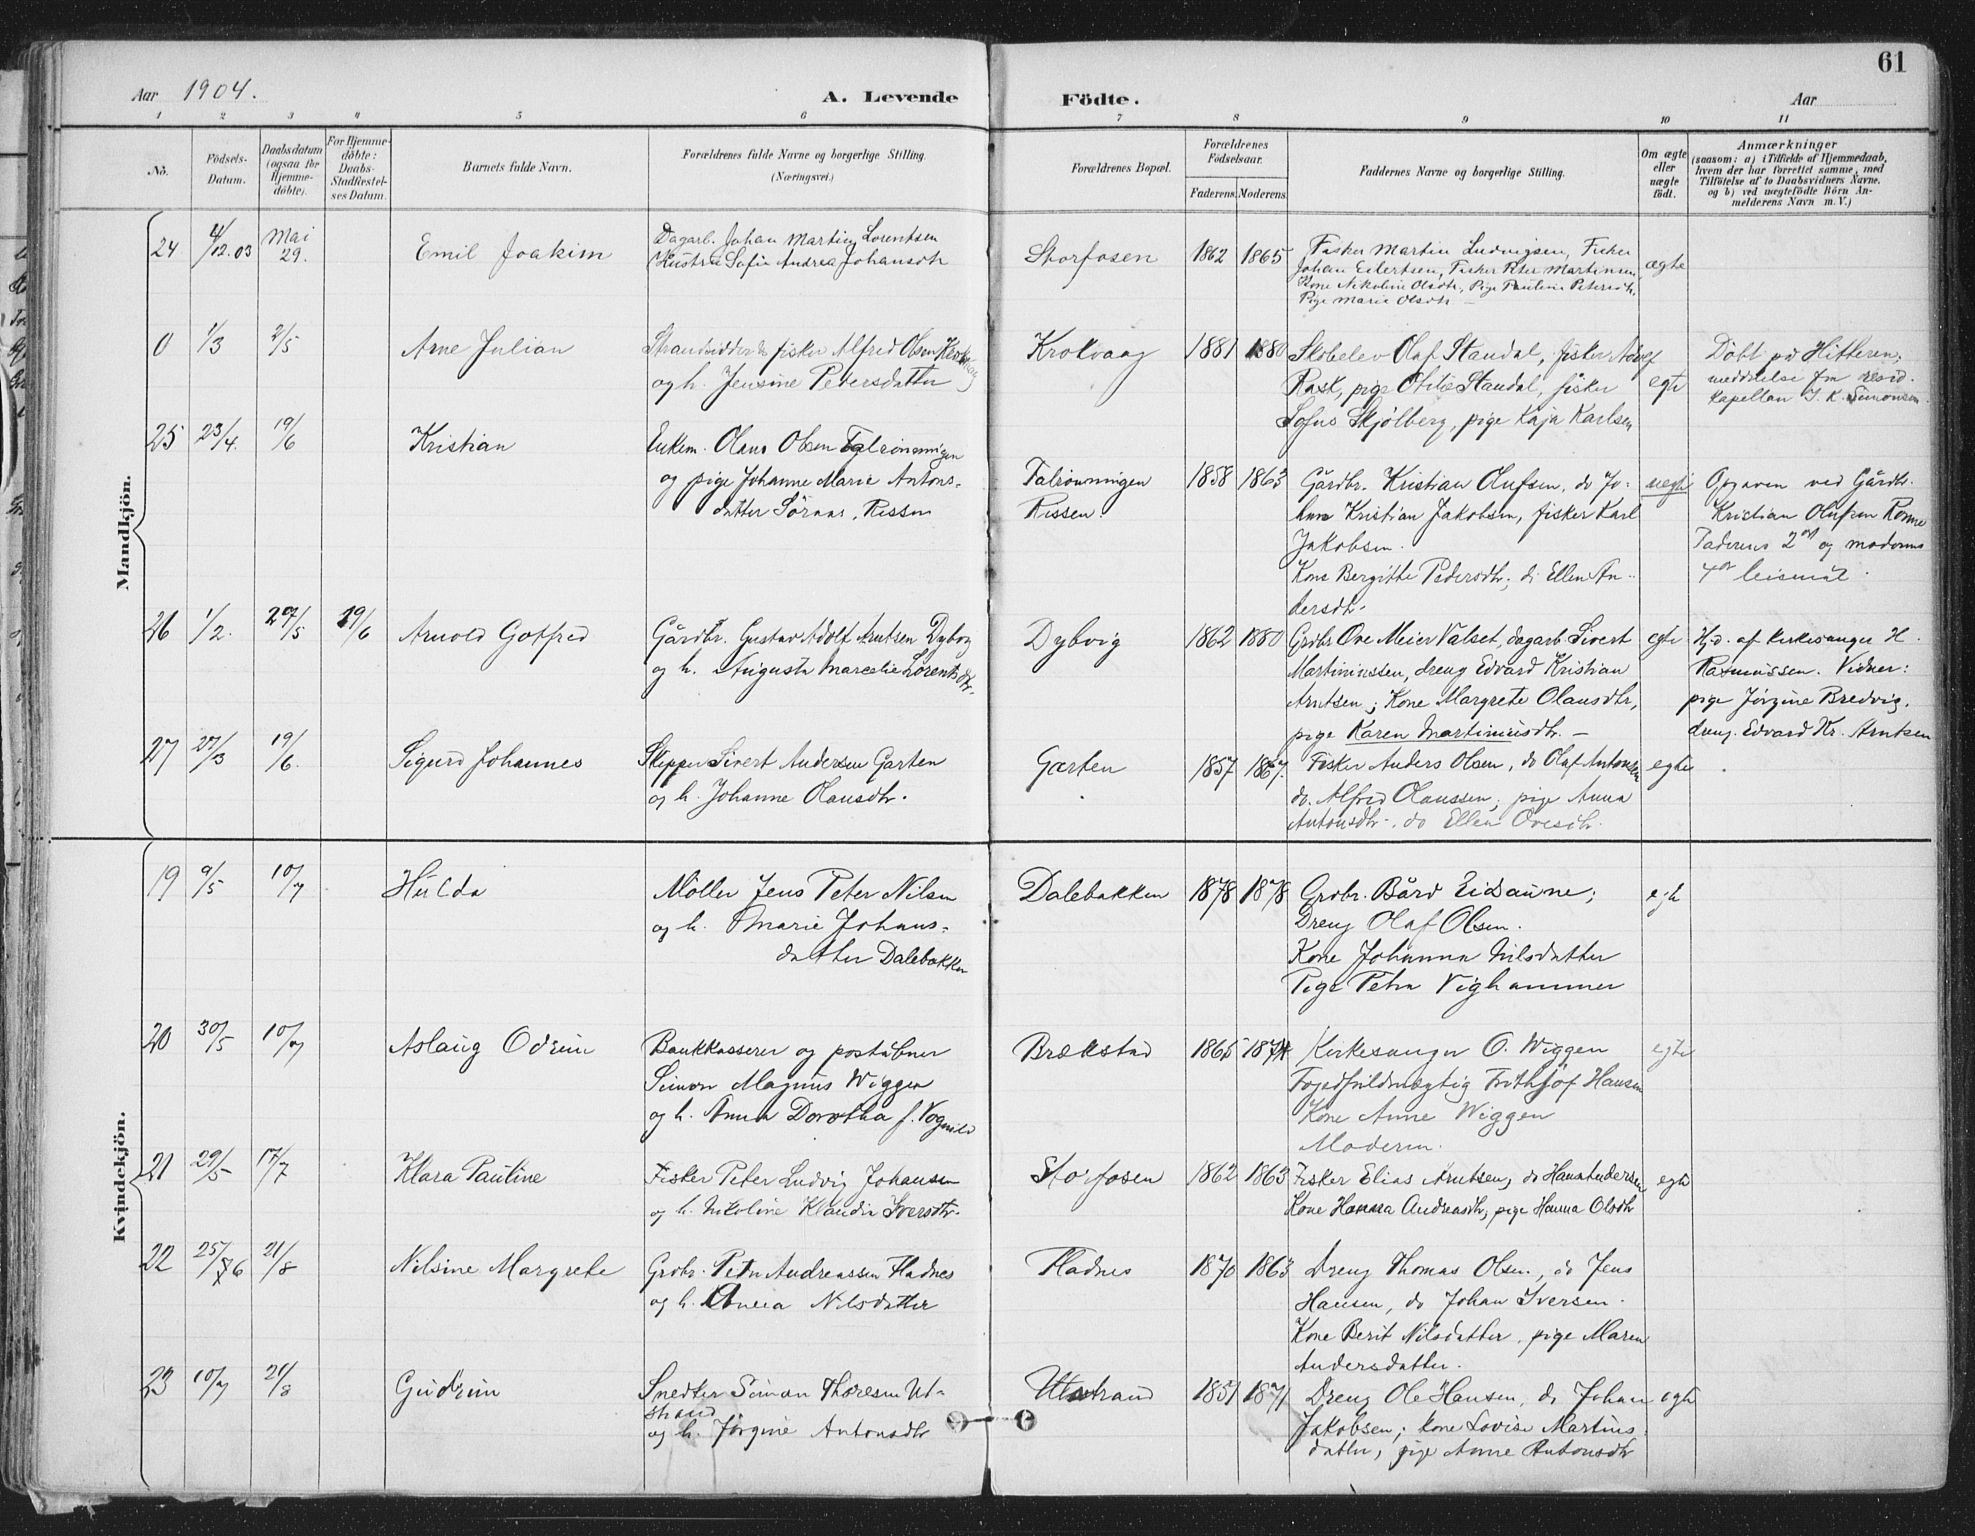 61
Aar 1904. A. Levende Födte. Aar
1 2 3 4 5 6 7 8 9 10 11
No.
Födsels-Datum.
Daabsdatum (ogsaa for Hjemme-döbte).
For Hjemme-döbte: Daabs-Stadfæstel-ses Datum.
Barnets fulde Navn.
Forældrenes fulde Navne og borgerlige Stilling.
(Næringsvei.)
Forældrenes Bopæl.
Forældrenes Födselsaar.
Faderens. Moderens.
Faddernes Navne og borgerlige Stilling.
Om ægte eller uægte födt.
Anmærkninger
(saasom: a) i Tilfælde af Hjemmedaab,
hvem der har forrettet samme, med
Tilföielse af to Daabsvidners Navne,
og b) ved uægtefödte Börn An-
melderens Navn m. V.)
Mandkjön.
24 4/12.03 Mai 29. Emil Joakim
Dagarb. Johan Martin Lorentsen
Hustru Sofie Andrea Johansdtr
Storfosen 1862 1865
Fisker Martin Ludvigsen, Fisker
Johan Eilertsen, Fisker Peter Martinsen
Kone Nikoline Olsdtr, Pige Pauline Petersdtr,
Pige Marie Olsdtr —
ægte
0 1/3 2/5 Arne Julian
Strandsidder & fisker Alfred Olsen Krokvaag
og h. Jensine Petersdatter
Krokvaag 1881 1880
Skoleelev Olaf Standal, fisker Adolf
Rask, pige Otilie Standal, fisker
Sofus Skjølberg, pige Kaja Karlsen
egte
Döbt på Hitteren,
meddelelse fra resid.
kapellan J. K. Simonsen.
25 23/4. 19/6 Kristian
Enkem. Olaus Olsen Falrönningen
og pige Johanne Marie Antons-
datter Söraas, Rissen
Falrönningen
Rissen.
1858 1863
Gårdbr. Kristian Olufsen, do Jo-
han Kristian Jakobsen, fisker Karl
Jakobsen.
Kone Bergitte Pedersdtr, do Ellen An-
dersdtr.
uegte
Opgaven ved Gårdbr.
Kristian Olufsen Rönne
Faderens 2det og moderens
4de leiemål.
26 1/2. 29/5 19/6 Arnold Gotfred
Gårdbr. Gustav Adolf Arntsen Dybvig
og h. Augusta Marcelie Lorentsdtr.
Dybvig 1862 1880
Grdbr Ove Meier Valset, dagarb. Sivert
Martinussen, dreng Edvard Kristian
Arntsen; Kone Margrete Olausdtr,
pige Karen Martiniusdtr. —
egte
Hjd. af kirkesanger H.
Rasmussen. Vidner:
pige Jörgine Bredvig,
dreng Edvard Kr. Arntsen
27 27/3 19/6. Sigurd Johannes
Skipper Sivert Andersen Garten
og h. Johanne Olausdtr.
Garten 1857 1867.
Fisker Anders Olsen, do Olaf Antonsen
do. Alfred Olaussen, pige Anna
Antonsdtr, do Ellen Ovesdtr.
egte
Kvindekjön.
19 9/5 10/7 Hulda
Möller Jens Peter Nilsen
og h. Marie Johans-
datter Dalebakken
Dalebakken 1878 1878
Grdbr. Bård Eidaune;
Dreng Olaf Olsen.
Kone Johanna Nilsdatter
Pige Petra Vighammer
egte
20 30/5 10/7 Aslaug Odrun
Bankkasserer og postaabner
Simon Magnus Wiggen
og h. Anna Dorothea f. Vognild
Brækstad 1865 1874
Kirkesanger O. Wiggen
Fogedfuldmægtig Frithjof Hansen
Kone Anne Wiggen
Moderen.
egte
21 29/5 17/7 Klara Pauline
Fisker Peter Ludvig Johansen
og h. Nikoline Klaudia Iversdtr.
Storfosen 1862 1863
Fisker Elias Arntsen, do Hans Andersen
Kone Hanna Andreasdtr, pige Hanna Olsdtr
egte
22 25/6 21/8 Nilsine Margrete
Grdbr. Peter Andreassen Fladnes
og h. Anna Nilsdatter
Fladnes 1870 1863
Dreng Thomas Olsen, do Jens
Hansen, do Johan Iversen.
Kone Berit Nilsdatter, pige Maren
Andersdatter.
23 10/7 21/8 Gudrun
Snedker Simon Thoresen Ut-
strand
og h. Jörgine Antonsdtr
Utstrand 1851 1871
Dreng Ole Hansen, do Johan
Jakobsen; kone Lovise Martins-
datter, pige Anne Antonsdtr
egte